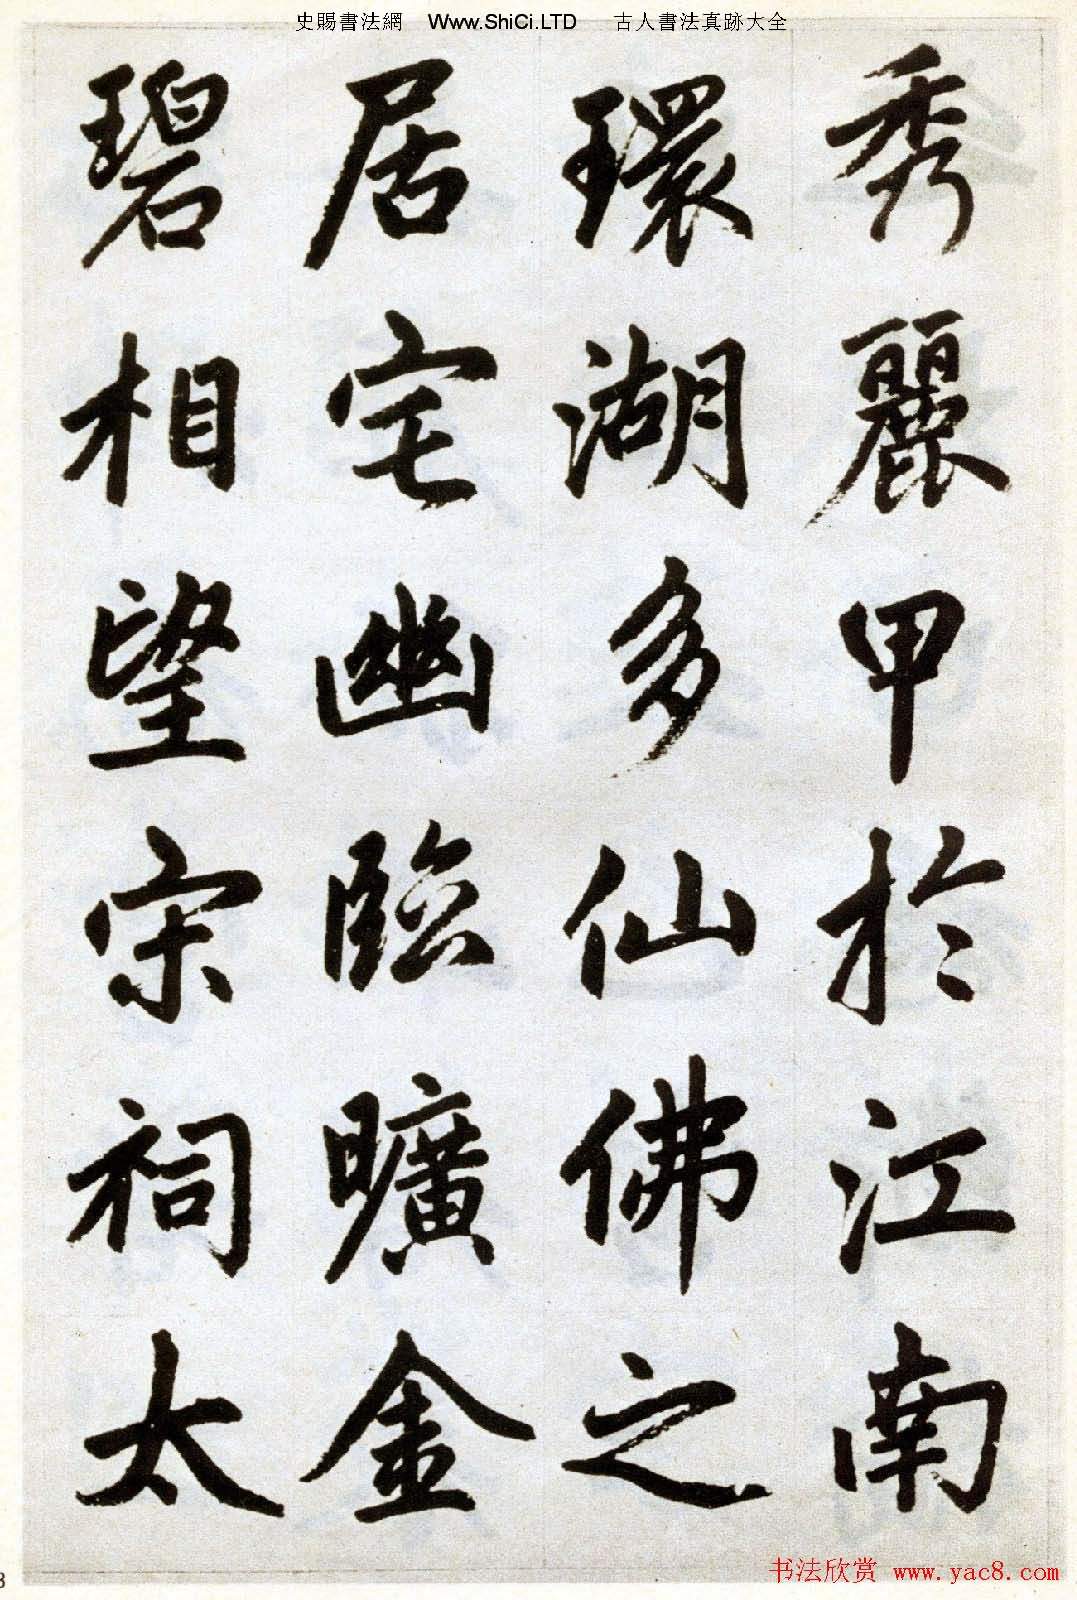 史賜書法網 Www.ShiCi.LTD 古人書法真跡大全
秀麗甲於江南
環湖多仙佛之
居宅幽臨曠金
碧相望宋祠太
书法欣赏 www.yac8.com
8